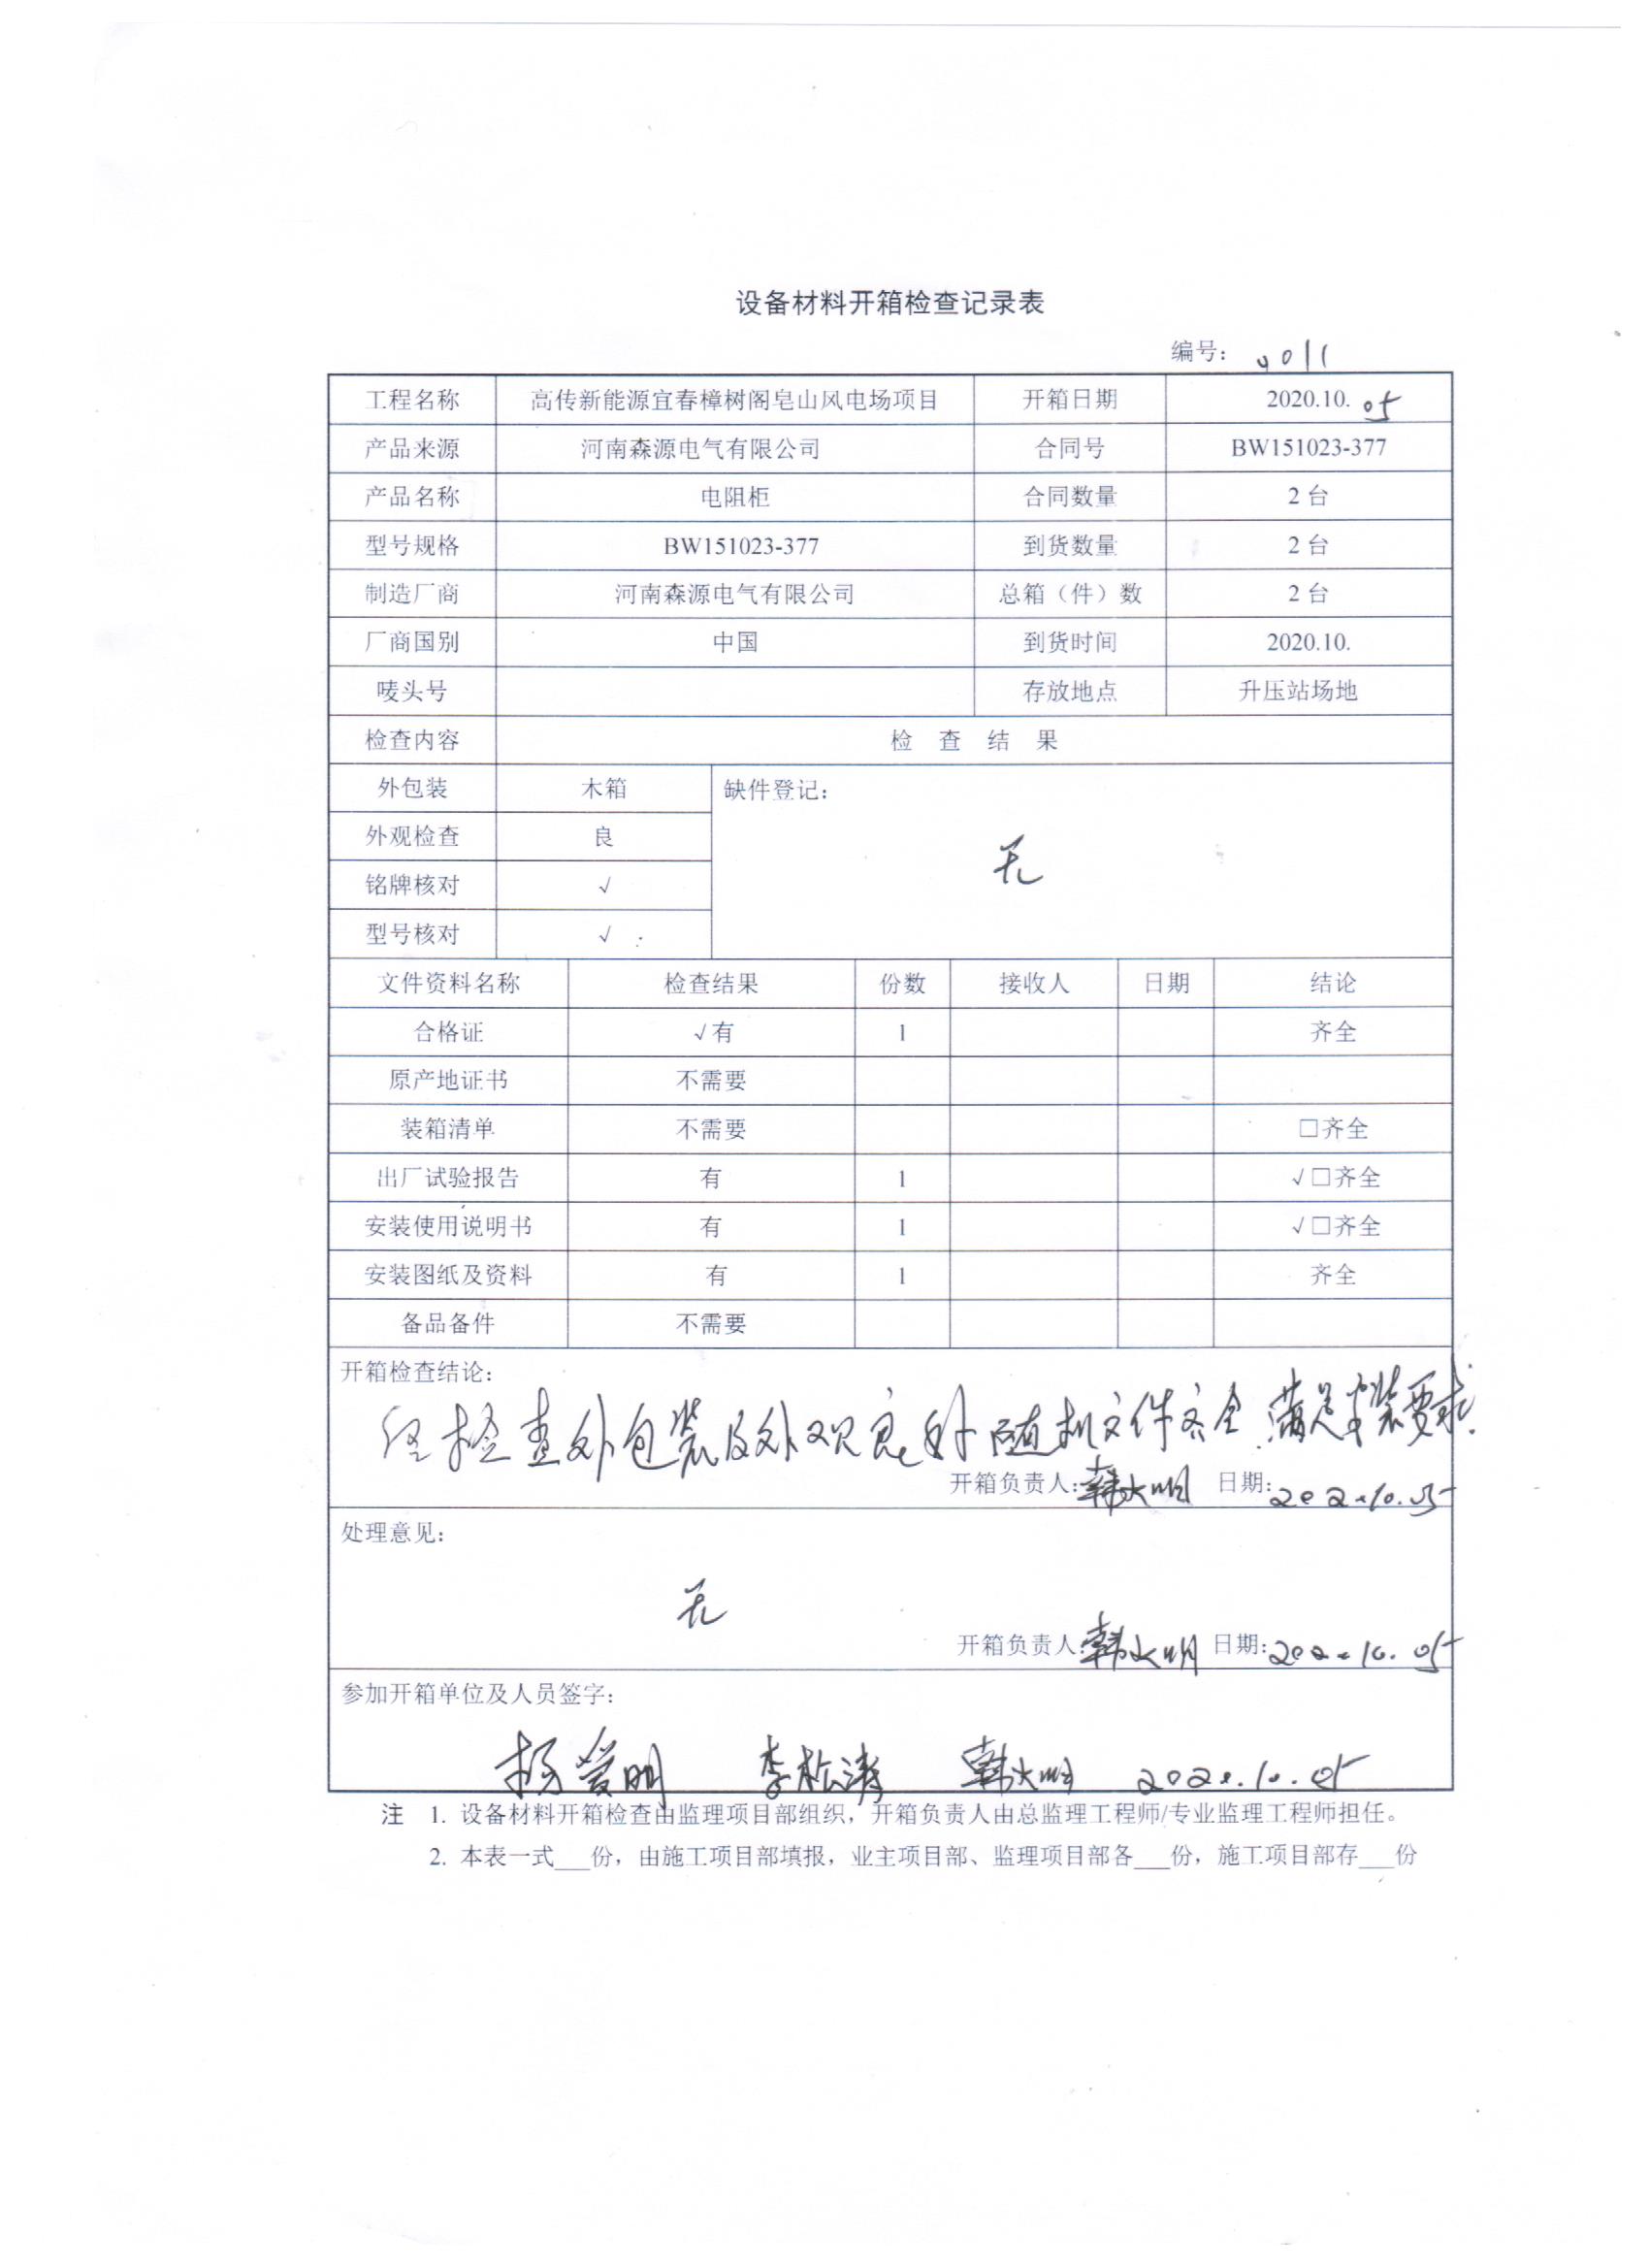 设备材料开箱检查记录表
编号： 0011
工程名称 高传新能源宜春樟树阁皂山风电场项目 开箱日期 2020.10. 05
产品来源 河南森源电气有限公司 合同号 BW151023-377
产品名称 电阻柜 合同数量 2 台
型号规格 BW151023-377 到货数量 2 台
制造厂商 河南森源电气有限公司 总箱（件）数 2 台
厂商国别 中国 到货时间 2020.10.
唛头号 存放地点 升压站场地
检查内容 检 查 结 果
外包装 木箱 缺件登记：
外观检查 良
无
铭牌核对 √
型号核对 √
文件资料名称 检查结果 份数 接收人 日期 结论
合格证 √有 1 齐全
原产地证书 不需要
装箱清单 不需要 □齐全
出厂试验报告 有 1 √□齐全
安装使用说明书 有 1 √□齐全
安装图纸及资料 有 1 齐全
备品备件 不需要
开箱检查结论：
经检查外包装及外观良好 随机文件齐全.满足安装要求.
开箱负责人：韩大明 日期：2020.10.05
处理意见：
无
开箱负责人：韩大明 日期：2020.10.05
参加开箱单位及人员签字：
杨爱明 李松涛 韩大明 2020.10.05
注 1. 设备材料开箱检查由监理项目部组织，开箱负责人由总监理工程师/专业监理工程师担任。
2. 本表一式___份，由施工项目部填报，业主项目部、监理项目部各___份，施工项目部存___份